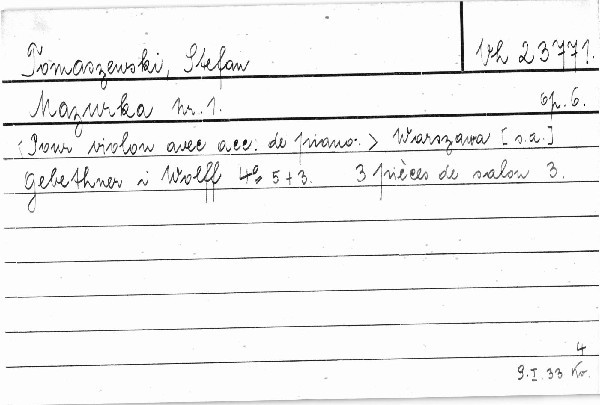 Tomaszewski, Stefan Vh 23771.
Mazurka nr. 1. op. 6.
<Pour violon avec acc. de piano.> Warszawa [s.a.]
Gebethner i Wolff 4° 5+3. 3 pièces de salon 3.
4
9.I.33 Kr.